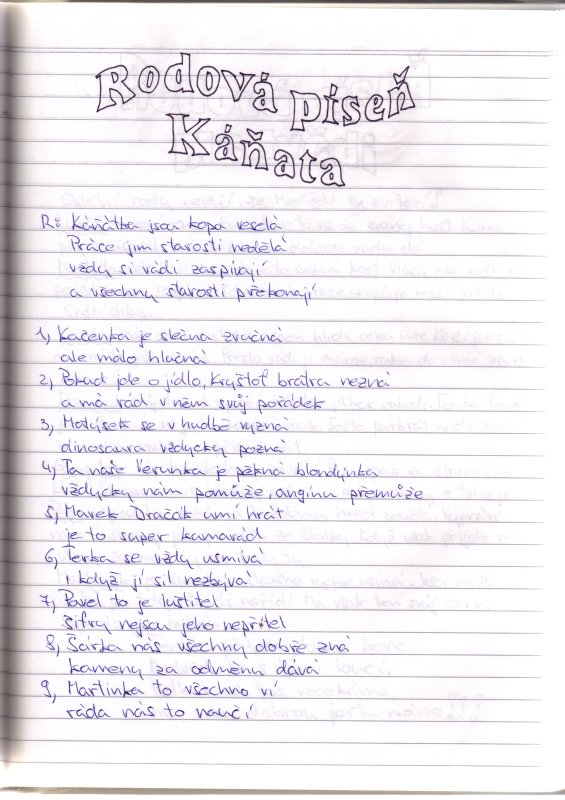 Rodová píseň
Káňata
R: Káňátka jsou kopa veselá
Práce jim starosti nedělá
vždy si rádi zaspívají
a všechny starosti překonají
1, Kačenka je slečna zvučná
ale málo hlučná
2, Pokud jde o jídlo, Kryštof bratra nezná
a má rád v něm svůj pořádek
3, Matýsek se v hudbě vyzná
dinosaura vždycky pozná
4, Ta naše Verunka je pěkná blondýnka
vždycky nám pomůže, angínu přemůže
5, Marek Dračák umí hrát
je to super kamarád
6, Terka se vždy usmívá
i když jí sil nezbývá
7, Pavel to je luštitel
šifry nejsou jeho nepřítel
8, Šárka nás všechny dobře zná
kameny za odměnu dává
9, Martinka to všechno ví
ráda nás to naučí